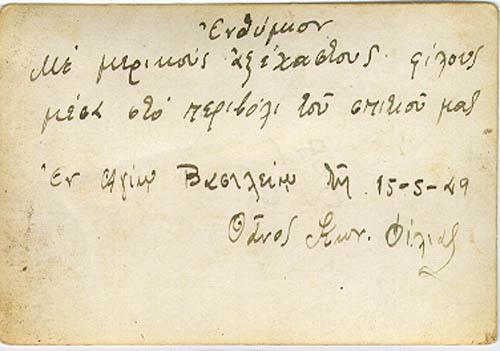 Ἐνθύμιον
Μέ μερικούς ἀξέχαστους φίλους
μέσα στό περιβόλι τοῦ σπιτιοῦ μας
Ἐν Ἁγίῳ Βασιλείῳ τῇ 15-5-49
Θᾶνος Κων. Φίλιας